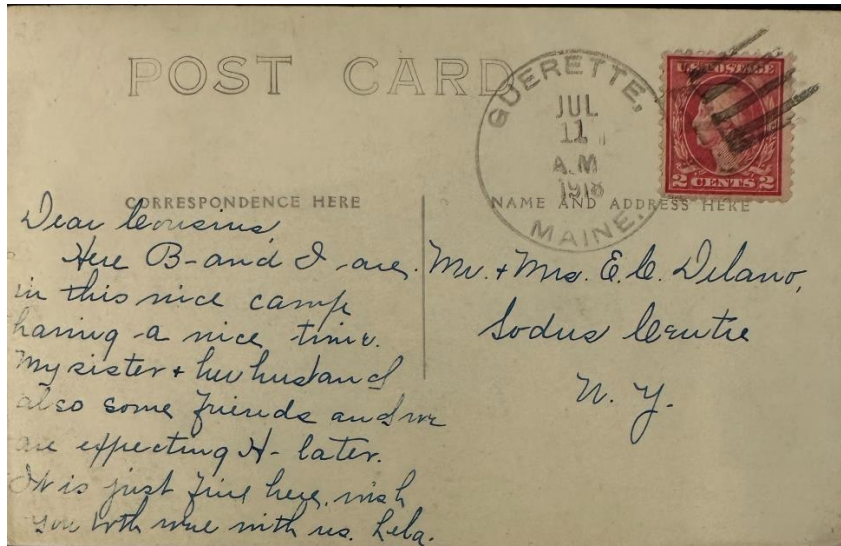 POST CARD
GUERETTE,
JUL
11
A.M
1918
MAINE.
U.S. POSTAGE
2 CENTS 2
CORRESPONDENCE HERE
NAME AND ADDRESS HERE
Dear Cousins,
Here B- and I are
in this nice camp
having a nice time.
My sister + her husband
also some friends and we
are expecting H- later.
It is just fine here, wish
you both were with us. Lela.
Mr. + Mrs. E. C. Delano,
Sodus Centre
N. Y.